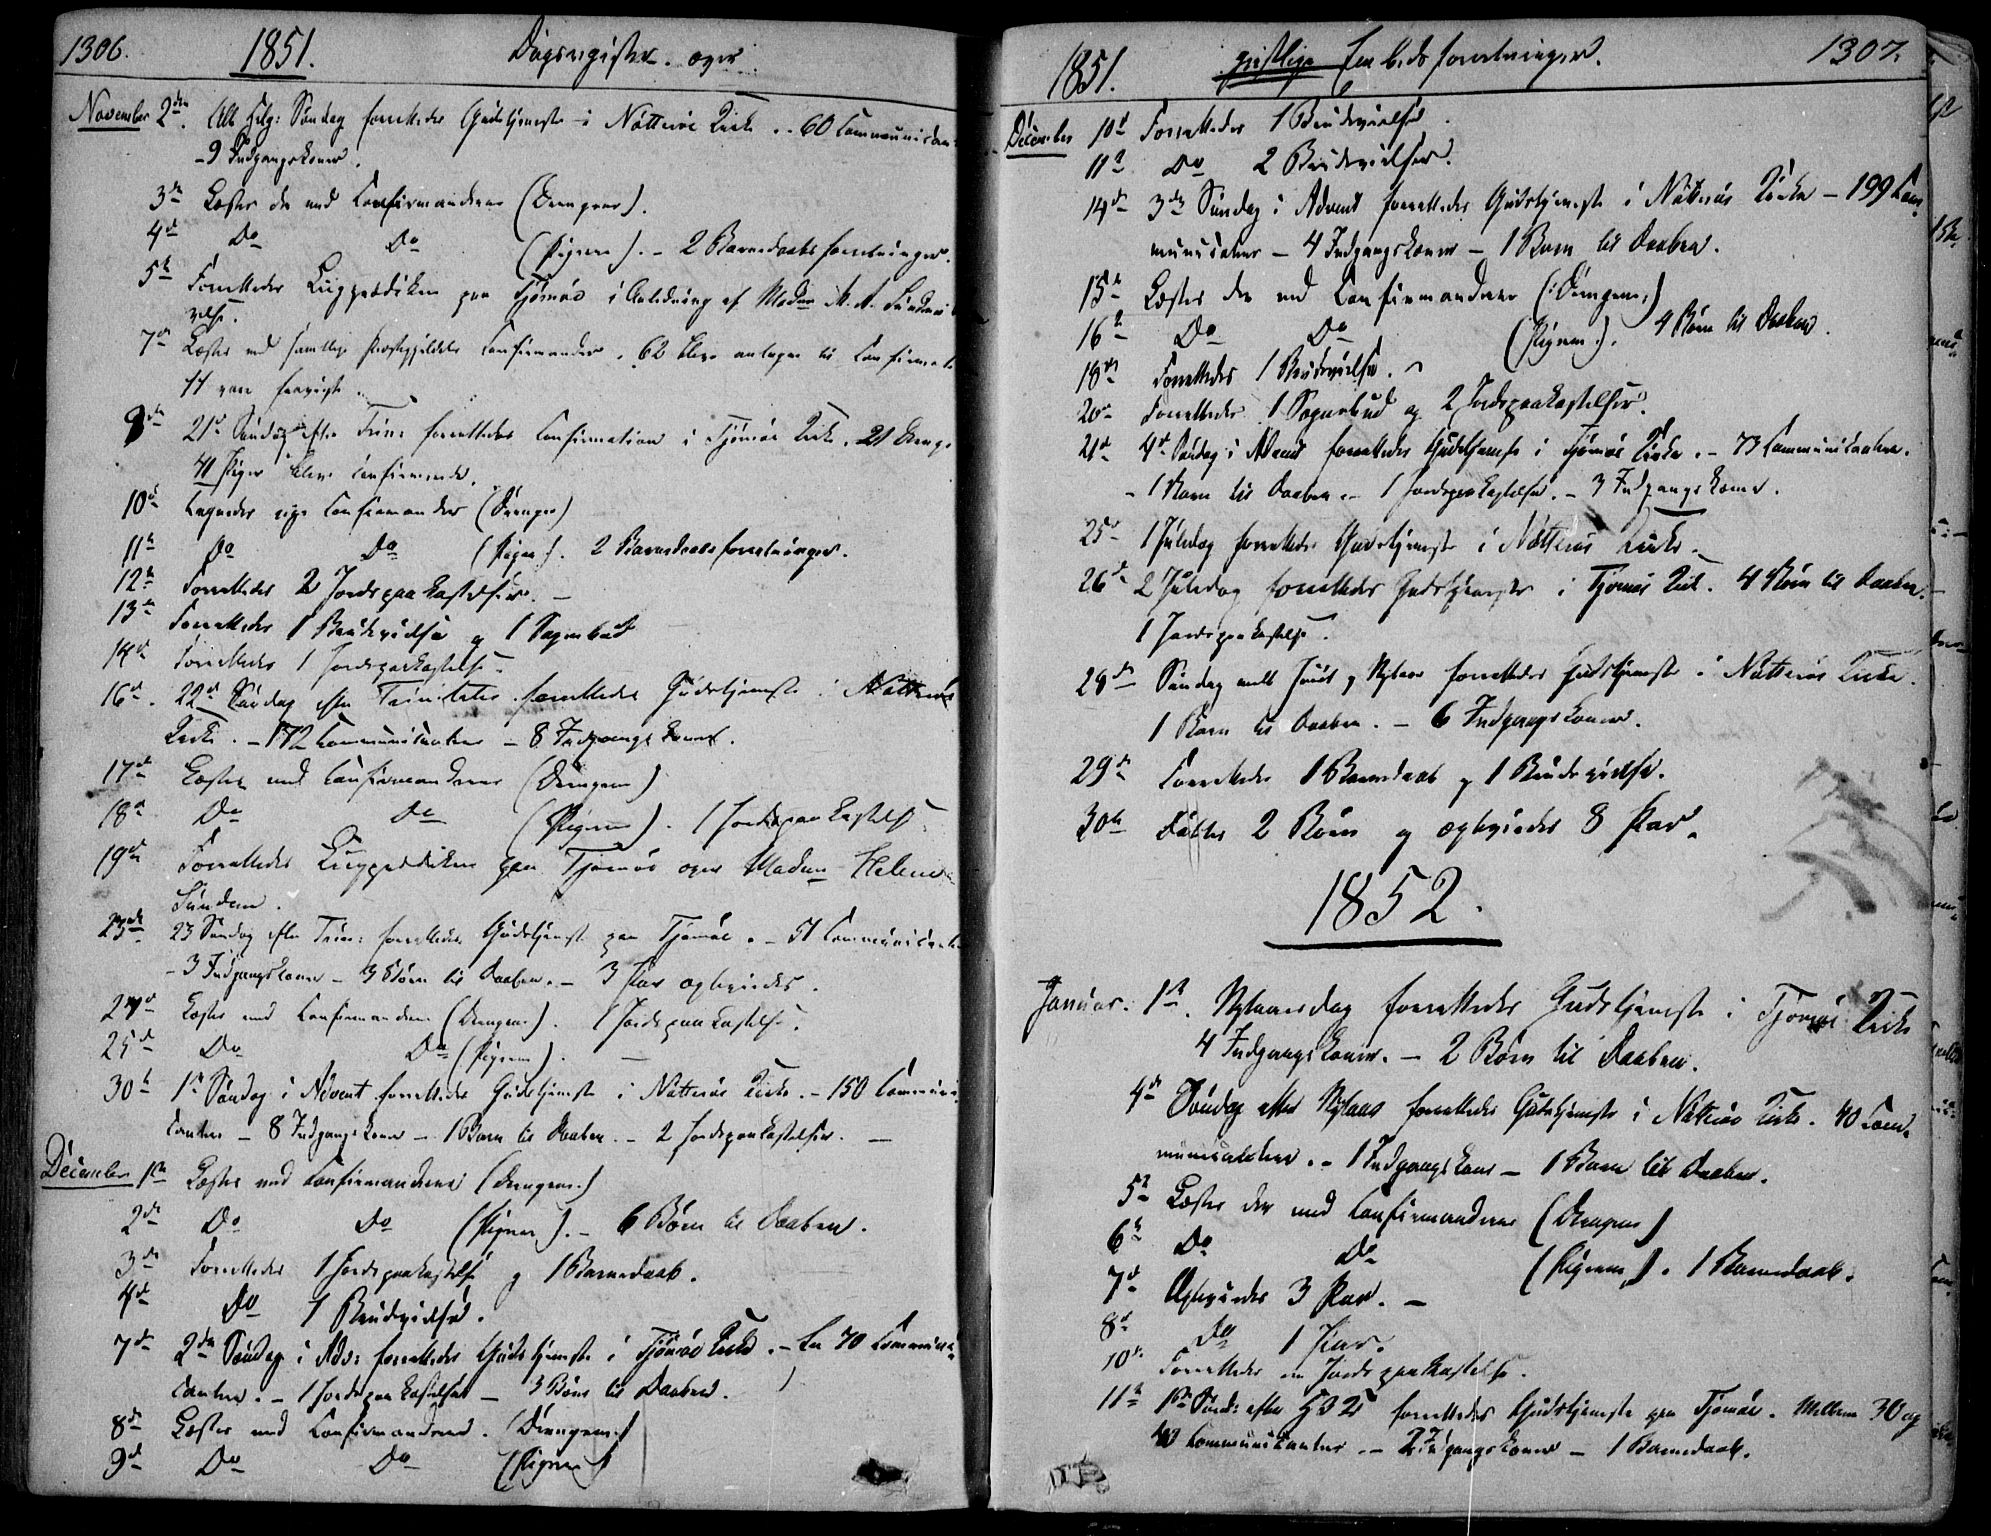 1306.
1851.
Dagsregister over
November 2den Alle Helg: Søndag forrettedes Gudstjeneste i Nøtterøe Kirke .. 60 Communican
- 9 Indgangskoner.
3die Læstes der med Confirmanderne (Drengene).
4de Do Do (Pigerne). - 2 Barnedaabsforretninger.
5te Forrettedes Liigprædiken paa Tjømøe i Anledning af Madam M. A.
7de Læstes med samtlige Præstegjeldets Confirmander. 62 bleve antagne til Confirmati
11 vare
9de 21de Søndag efter Trin: forrettedes Confirmation i Tjømøe Kirke. 21 Drenge
41 Piger bleve confirmerede.
10de Confirmander (Drenge)
11te Do Do (Piger). 2 Barnedaabsforretninger.
12te Forrettedes 2 Jordspaakastelser. -
13de Forrettedes 1 Brudevielse og 1 Sognebud
14de Forrettedes 1 Jordspaakastelse.
16de. 22de Søndag efter Trinitatis forrettedes Gudstjeneste i Nøtterøe
Kirke. - 172 Communicanter - 8 Indgangskoner.
17de Læstes med Confirmanderne (Drengene)
18de Do Do (Pigerne). 1 Jordspaakastelse
19de Forrettedes Liigprædiken paa Tjømøe over Madam Helene
Sundene.
23de. 23 Søndag efter Trin: forrettedes Gudstjeneste paa Tjømøe. - 51 Communicante
- 3 Indgangskoner - 3 Børn til Daaben. - 3 Par ægteviedes.
24de Læstes med Confirmanderne (Drengene). 1 Jordspaakastelse.
25de Do Do (Pigerne). -
30te 1ste Søndag i Advent forrettedes Gudstjeneste i Nøtterøe Kirke. - 150 Communi
canter - 8 Indgangskoner - 1 Barn til Daaben. - 2 Jordspaakastelser. -
December 1ste Læstes med Confirmanderne (Drengene)
2den Do Do (Pigerne). - 6 Børn til Daaben.
3die Forrettedes 1 Jordspaakastelse og 1 Barnedaab.
4de Do 1 Brudevielse.
7de 2den Søndag i Adv: forrettedes Gudstjeneste i Tjømøe Kirke. - 70 Communi
canter. - 1 Jordspaakastelse - 3 Børn til Daaben.
8de Læstes med Confirmanderne. (Drengene)
9de Do Do (Pigerne)
1851.
geistlige Embedsforretninger.
1307.
December 10de Forrettedes 1 Brudevielse.
11te Do 2 Brudevielser.
14de 3die Søndag i Advent forrettedes Gudstjeneste i Nøtterøe Kirke - 199 Com
municanter - 4 Indgangskoner - 1 Barn til Daaben.
15de Læstes der med Confirmanderne (Drengene)
16de Do Do (Pigerne). 4 Børn til Daaben.
18de Forrettedes 1 Brudevielse.
20de Forrettedes 1 Sognebud og 2 Jordspaakastelser.
21de 4de Søndag i Advent forrettedes Gudstjeneste i Tjømøe Kirke. - 73 Communicanter.
- 1 Barn til Daaben. - 1 Jordspaakastelse. - 3 Indgangskoner.
25de 1 Juledag forrettedes Gudstjeneste i Nøtterøe Kirke.
26de 2 Juledag forrettedes Gudstjeneste i Tjømøe Kirk. 4 Børn til Daaben.
1 Jordspaakastelse.
28de Søndag mell Juul og Nytaar forrettedes Gudstjeneste i Nøtterøe Kirke.
1 Barn til Daaben. - 6 Indgangskoner.
29de Forrettedes 1 Barnedaab og 1 Brudevielse.
30te Døbtes 2 Børn og ægteviedes 8 Par.
1852.
Januar. 1ste. Nytaarsdag forrettedes Gudstjeneste i Tjømøe Kirke
4 Indgangskoner. - 2 Børn til Daaben.
4de Søndag efter Nytaar forrettedes Gudstjeneste i Nøtterøe Kirke. 40 Com
municanter. - 1 Indgangskone - 1 Barn til Daaben.
5te Læstes der med Confirmanderne (Drengene)
6te Do Do (Pigerne). 1 Barnedaab.
7de Ægteviedes 3 Par. -
8de Do 1 Par.
10de Forrettedes en Jordspaakastelse.
11te 1ste Sønd: efter forrettedes Gudstjeneste paa Tjømøe. Mellem 30 og
40 Communicanter. - 2 Indgangskoner - 1 Barnedaab.